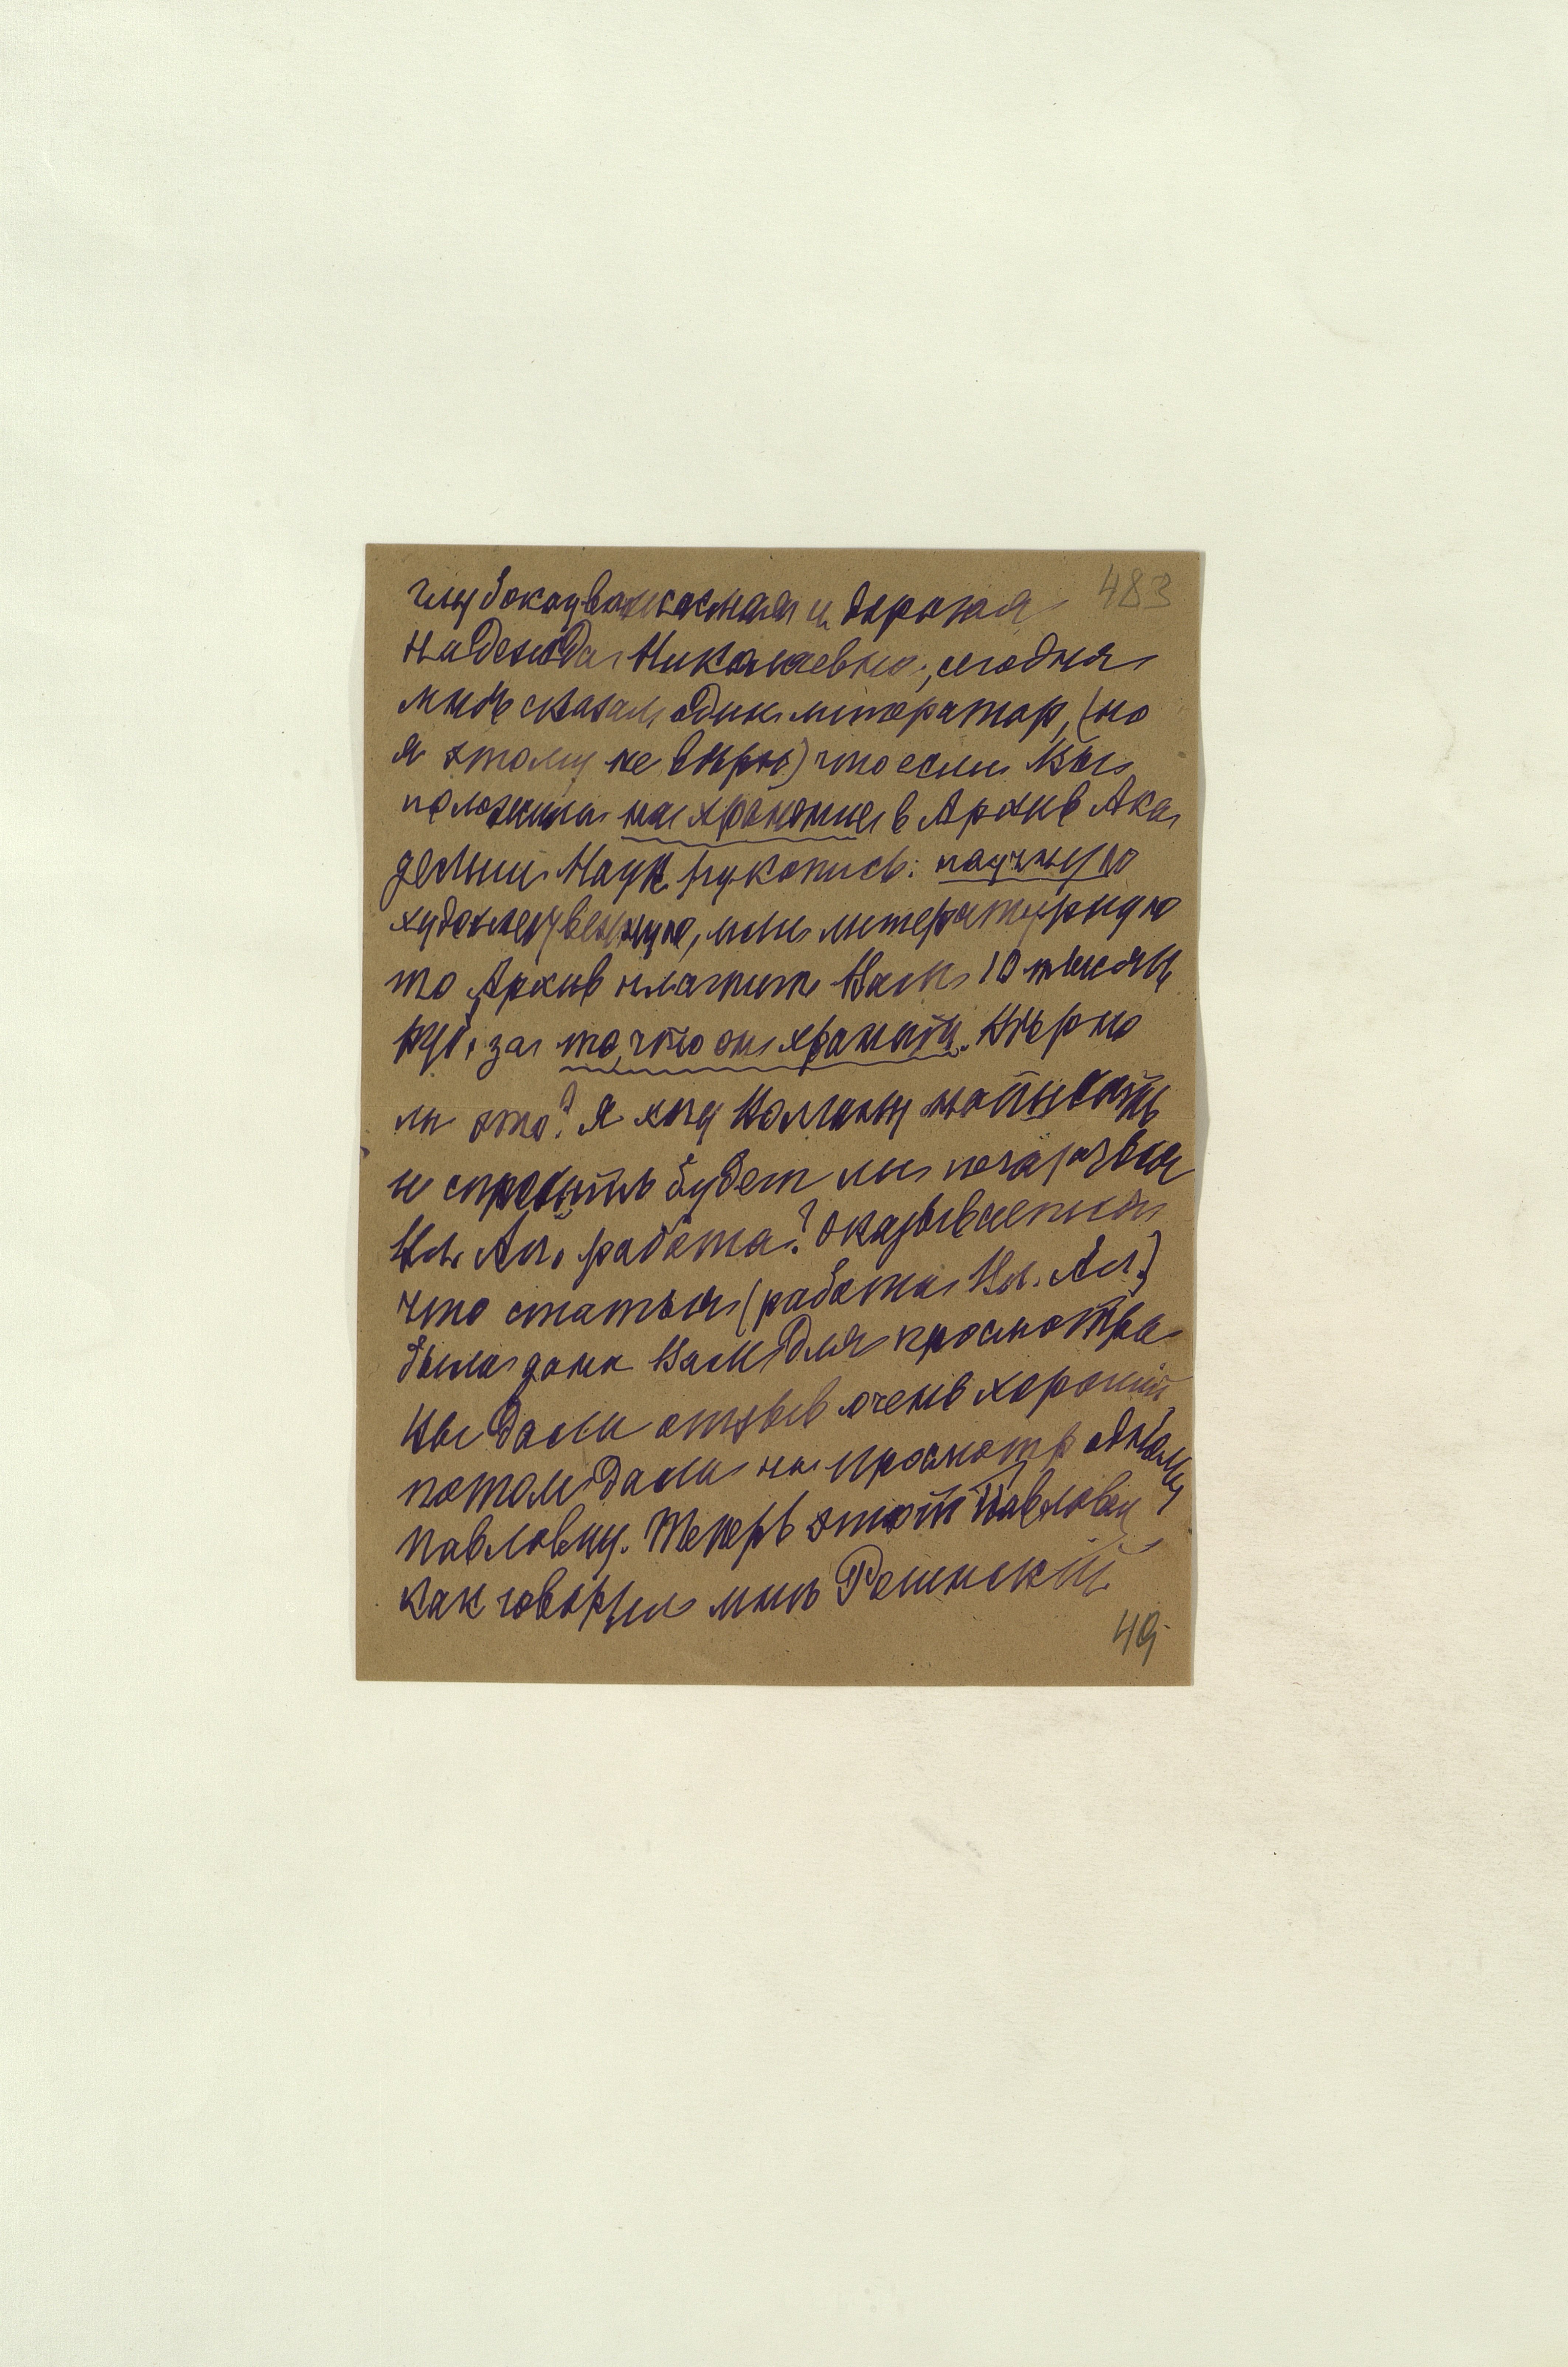 483
глубокоуважаемая и дорогая
Надежда Николаевна, сегодня
мнѣ сказал один литератор, (но
я этому не вѣрю) что если Вы
положили на хранение в Архив Ака
демии Наук рукопись: научную
художественную, или литературную
то Архив платит Вам 10 тысяч
руб. за то, что он хранит. Вѣрно
ли это? Я хочу написать
и спросить будет ли
Вл. Ал. работа? Оказывается
что статья (работа Вл. Ал.)
была дана Вам для просмотра
Вы дали отзыв очень хороший
потом дали на просмотр одному
Павловцу. Теперь этот Павловец
как говорил мнѣ
49